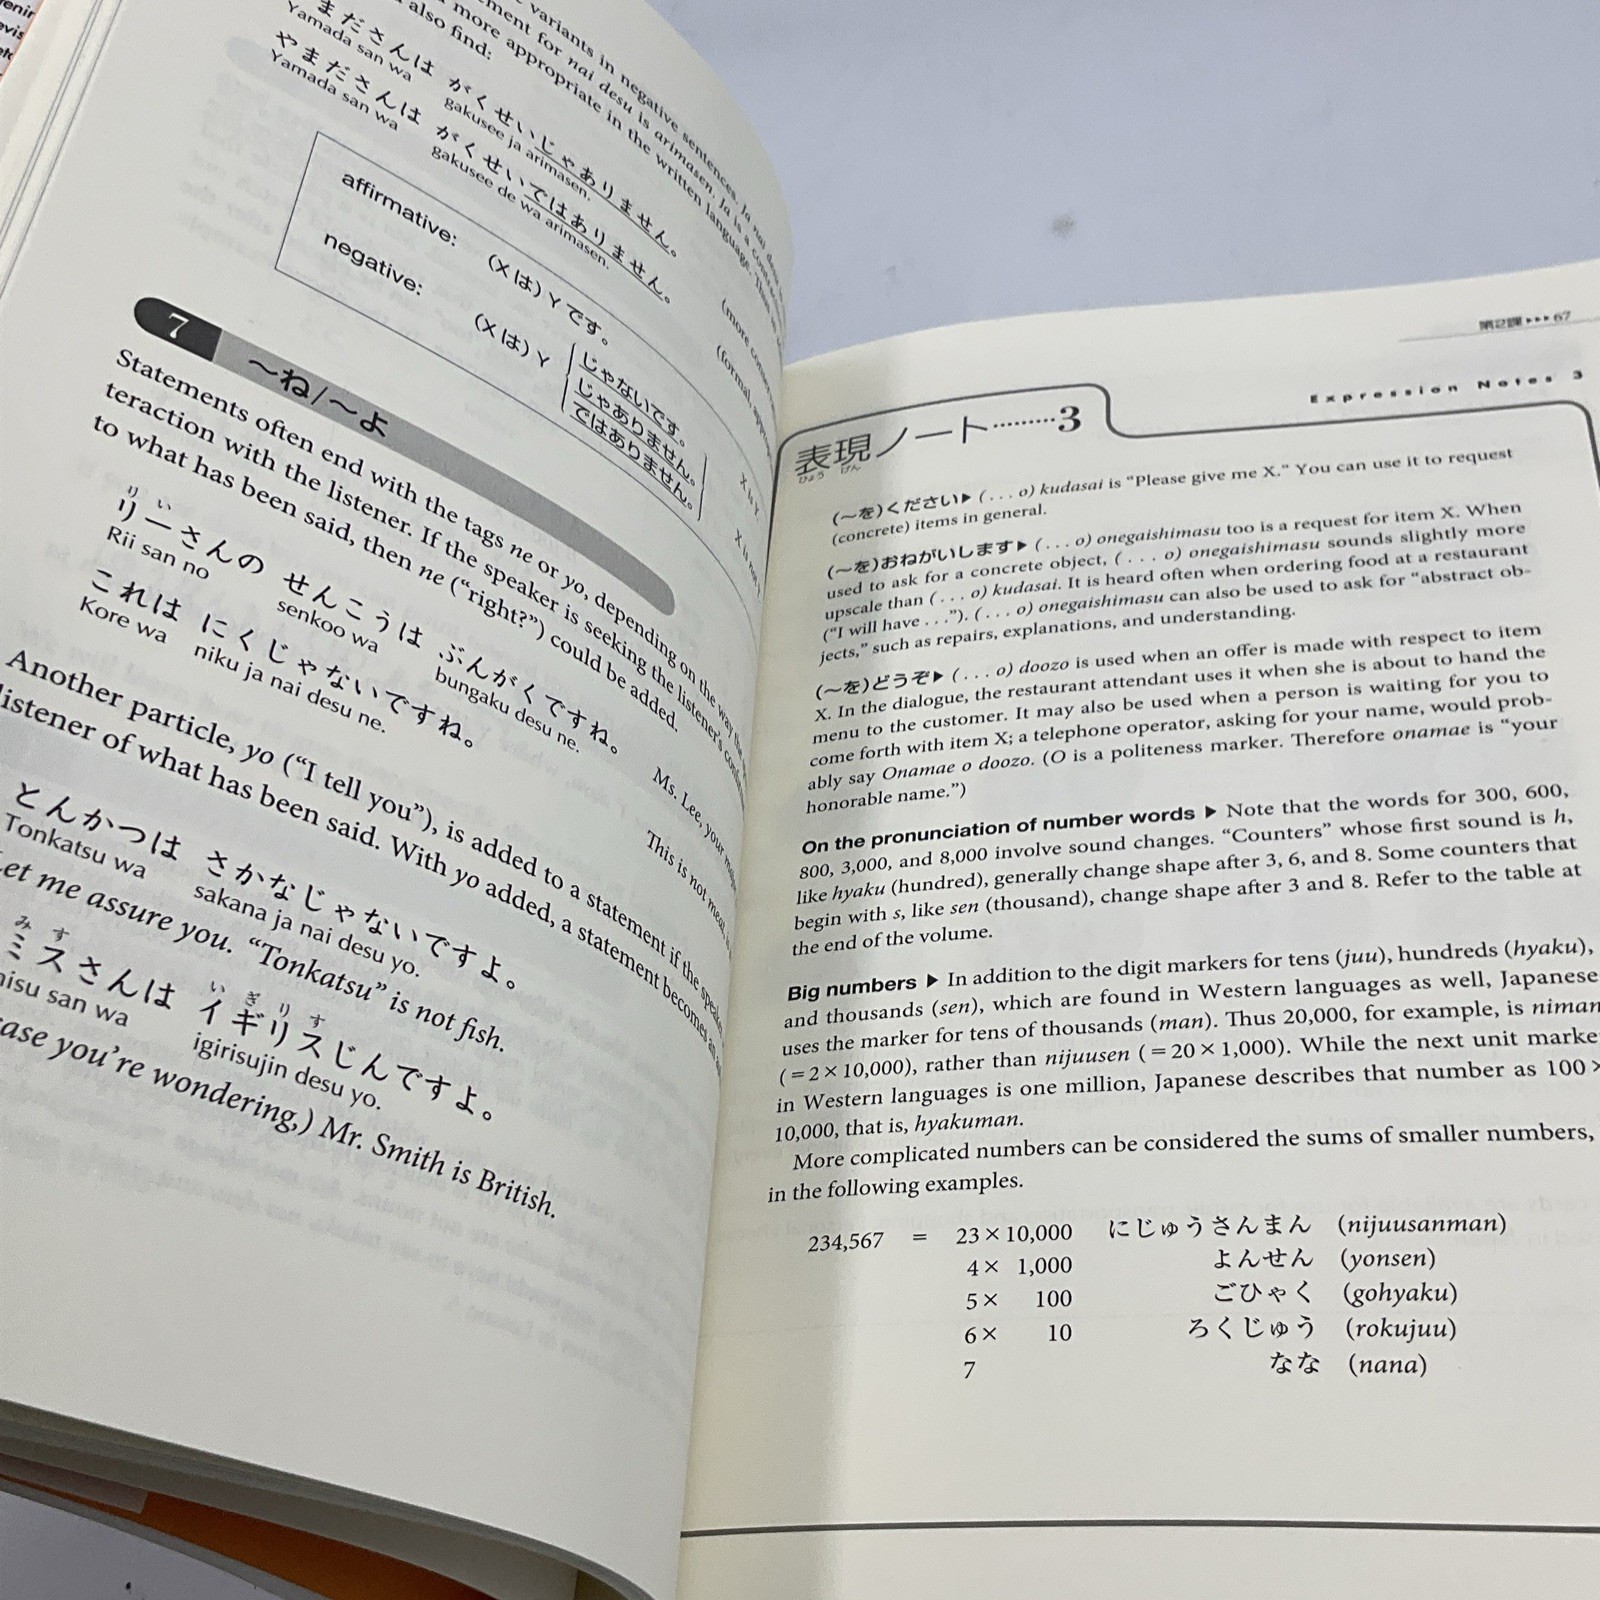 variants in negative sentences. Ja nai desu
ment for nai desu is arimasen. Ja is a
more appropriate in the written language.
also find:
まださんは がくせいじゃありません。
Yamada san wa gakusee ja arimasen.
やまださんは がくせいではありません。
Yamada san wa gakusee de wa arimasen.
affirmative: (Xは) Yです。
negative: (Xは) Y じゃないです。
じゃありません。
ではありません。
7 〜ね/〜よ
Statements often end with the tags ne or yo, depending on the way the
teraction with the listener. If the speaker is seeking the listener's
to what has been said, then ne (“right?”) could be added.
りい
リーさんの せんこうは ぶんがくですね。
Rii san no senkoo wa bungaku desu ne.
Ms. Lee, your
これは にくじゃないですね。
Kore wa niku ja nai desu ne.
This is not meat,
Another particle, yo (“I tell you”), is added to a statement if the
listener of what has been said. With yo added, a statement becomes an
とんかつは さかなじゃないですよ。
Tonkatsu wa sakana ja nai desu yo.
Let me assure you. “Tonkatsu” is not fish.
みす いぎりす
ミスさんは イギリスじんですよ。
misu san wa igirisujin desu yo.
case you're wondering,) Mr. Smith is British.
第2課▸▸▸67
Expression Notes 3
表現ノート………3
ひょう げん
(〜を)ください▶(. . . o) kudasai is “Please give me X.” You can use it to request
(concrete) items in general.
(〜を)おねがいします▶(. . . o) onegaishimasu too is a request for item X. When
used to ask for a concrete object, (. . . o) onegaishimasu sounds slightly more
upscale than (. . . o) kudasai. It is heard often when ordering food at a restaurant
(“I will have . . .”). (. . . o) onegaishimasu can also be used to ask for “abstract ob-
jects,” such as repairs, explanations, and understanding.
(〜を)どうぞ▶(. . . o) doozo is used when an offer is made with respect to item
X. In the dialogue, the restaurant attendant uses it when she is about to hand the
menu to the customer. It may also be used when a person is waiting for you to
come forth with item X; a telephone operator, asking for your name, would prob-
ably say Onamae o doozo. (O is a politeness marker. Therefore onamae is “your
honorable name.”)
On the pronunciation of number words ▶ Note that the words for 300, 600,
800, 3,000, and 8,000 involve sound changes. “Counters” whose first sound is h,
like hyaku (hundred), generally change shape after 3, 6, and 8. Some counters that
begin with s, like sen (thousand), change shape after 3 and 8. Refer to the table at
the end of the volume.
Big numbers ▶ In addition to the digit markers for tens (juu), hundreds (hyaku),
and thousands (sen), which are found in Western languages as well, Japanese
uses the marker for tens of thousands (man). Thus 20,000, for example, is niman
(=2×10,000), rather than nijuusen (=20×1,000). While the next unit marke
in Western languages is one million, Japanese describes that number as 100×
10,000, that is, hyakuman.
More complicated numbers can be considered the sums of smaller numbers,
in the following examples.
234,567 = 23×10,000 にじゅうさんまん (nijuusanman)
4× 1,000 よんせん (yonsen)
5× 100 ごひゃく (gohyaku)
6× 10 ろくじゅう (rokujuu)
7 なな (nana)